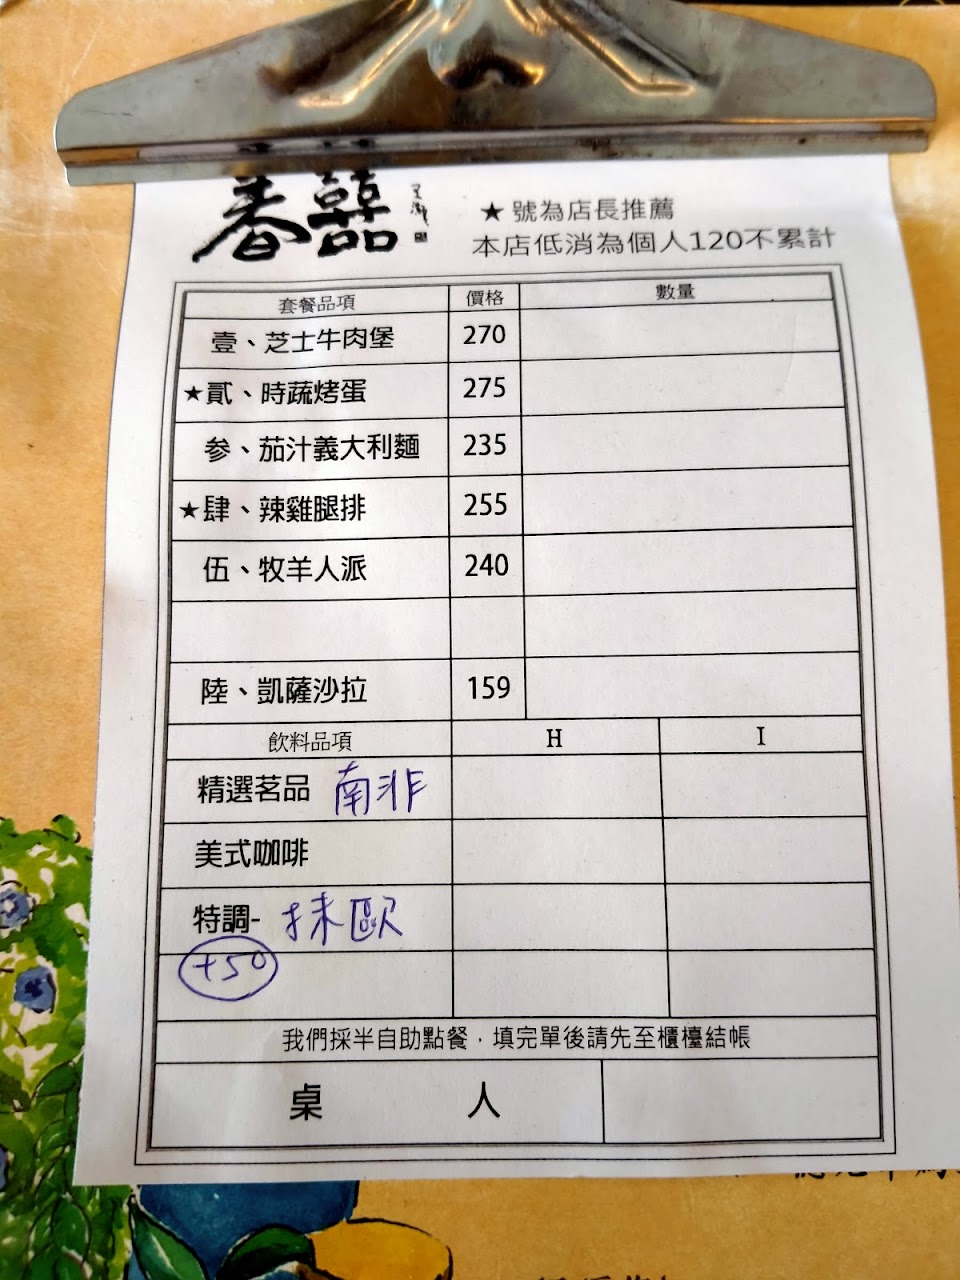 春囍
★ 號為店長推薦
本店低消為個人120不累計
套餐品項 價格 數量
壹、芝士牛肉堡 270
★貳、時蔬烤蛋 275
參、茄汁義大利麵 235
★肆、辣雞腿排 255
伍、牧羊人派 240
陸、凱薩沙拉 159
飲料品項 H I
精選茗品 南非
美式咖啡
特調- 抹歐
+50
我們採半自助點餐，填完單後請先至櫃檯結帳
桌 人